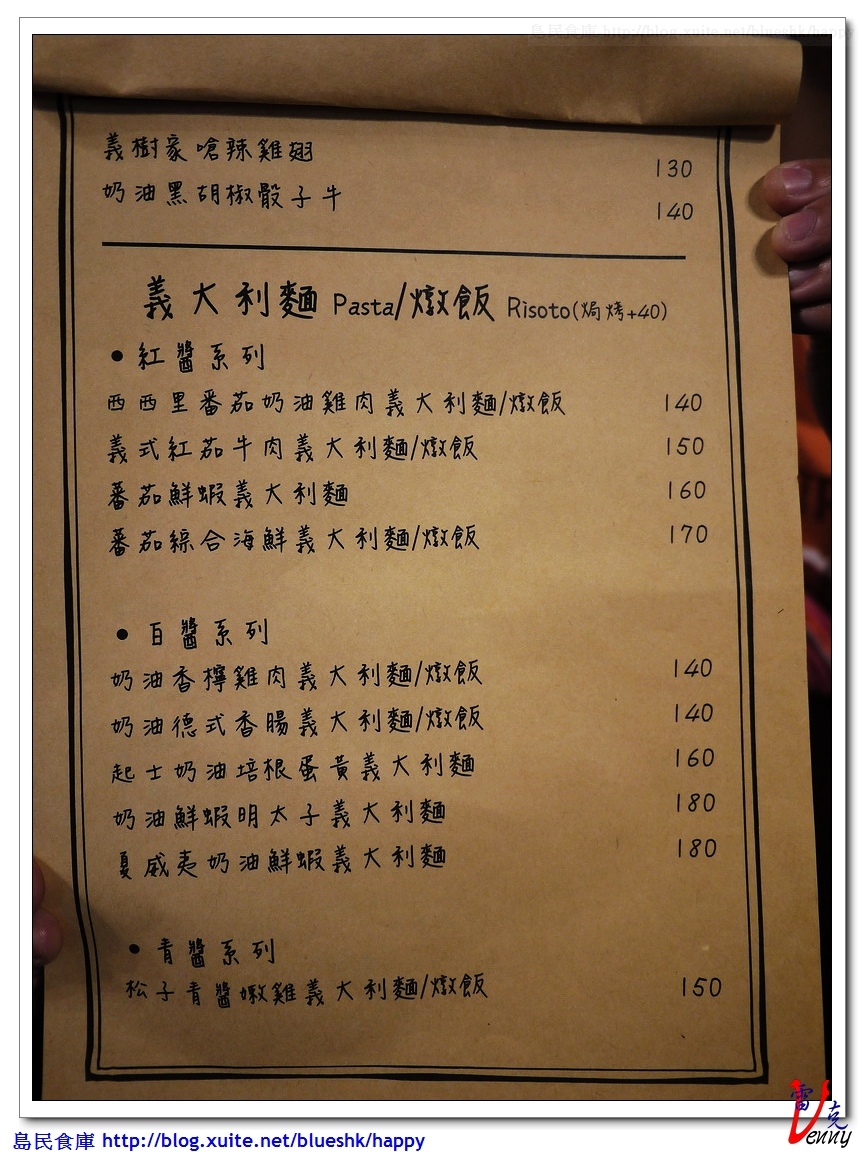 島民食庫 http://blog.xuite.net/blueshk/happy
義樹家嗆辣雞翅 130
奶油黑胡椒骰子牛 140
義大利麵 Pasta/燉飯 Risoto(焗烤+40)
• 紅醬系列
西西里番茄奶油雞肉義大利麵/燉飯 140
義式紅茄牛肉義大利麵/燉飯 150
蕃茄鮮蝦義大利麵 160
蕃茄綜合海鮮義大利麵/燉飯 170
• 白醬系列
奶油香檸雞肉義大利麵/燉飯 140
奶油德式香腸義大利麵/燉飯 140
起士奶油培根蛋黃義大利麵 160
奶油鮮蝦明太子義大利麵 180
夏威夷奶油鮮蝦義大利麵 180
• 青醬系列
松子青醬嫩雞義大利麵/燉飯 150
雷克
Venny
島民食庫 http://blog.xuite.net/blueshk/happy